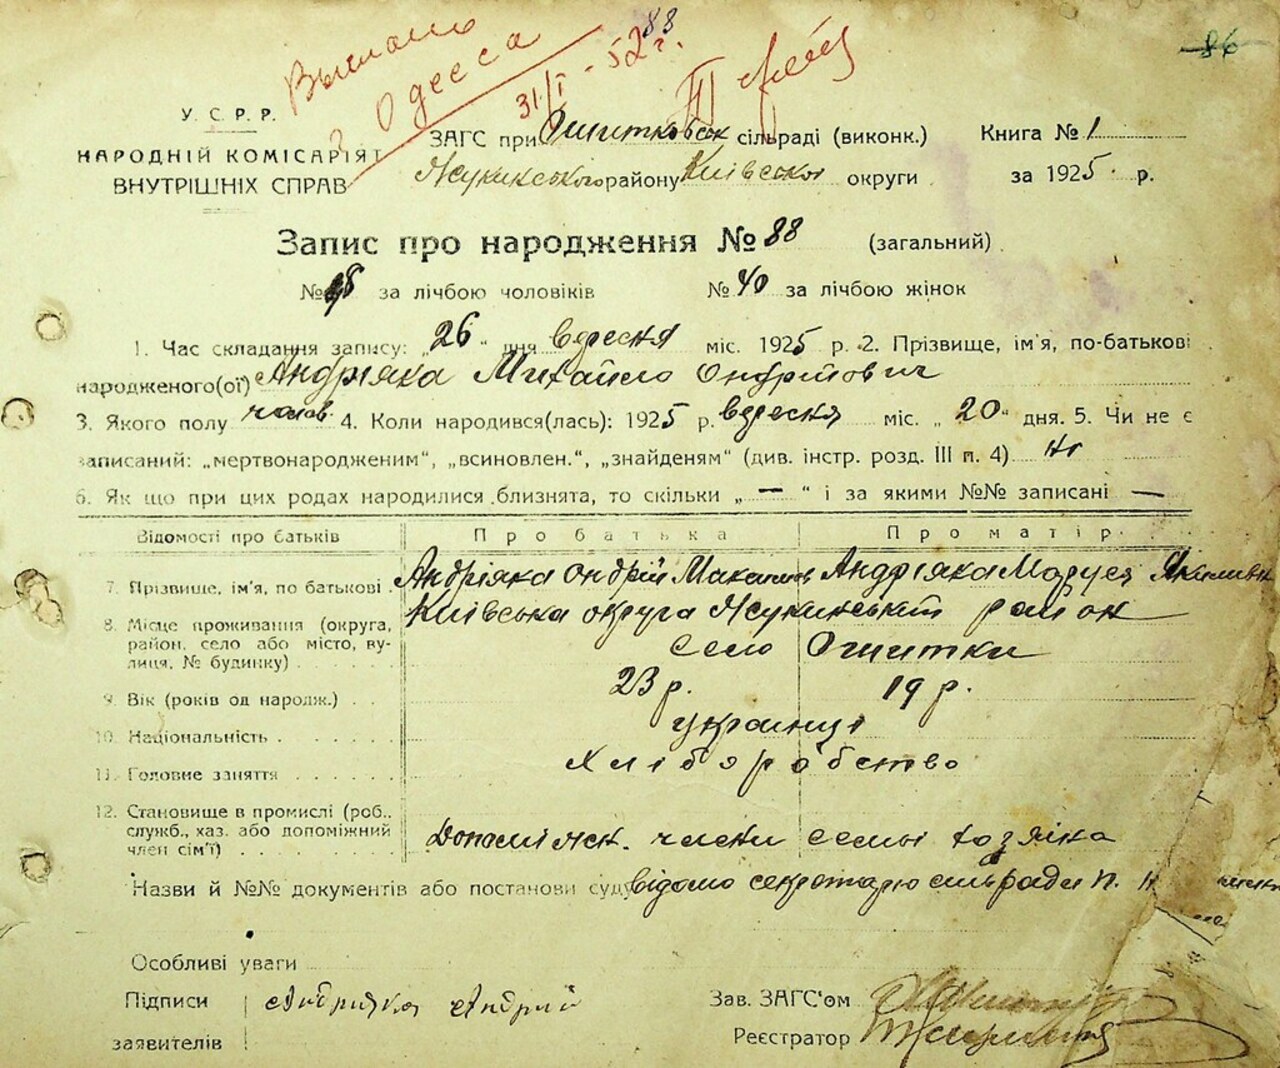 88
86
Выслано
в Одесса
31/I - 52 г.
У. С. Р. Р.
НАРОДНІЙ КОМІСАРІЯТ
ВНУТРІШНІХ СПРАВ
ЗАГС при Ошитковськ сільраді (виконк.)
Книга № 1
Жукинського району Київської округи
за 1925 р.
Запис про народження № 88 (загальний)
№ 48 за лічбою чоловіків № 40 за лічбою жінок
1. Час складання запису: „26“ дня вересня міс. 1925 р. 2. Прізвище, ім'я, по-батькові
народженого(ої) Андріяка Михайло Ондрійович
3. Якого полу чолов. 4. Коли народився(лась): 1925 р. вересня міс. „20“ дня. 5. Чи не є
записаний: „мертвонародженим“, „всиновлен.“, „знайденям“ (див. інстр. розд. III п. 4) ні
6. Як що при цих родах народилися близнята, то скільки „—“ і за якими №№ записані —
Відомості про батьків Про батька Про матір
7. Прізвище, ім'я, по батькові Андріяка Ондрій Андріяка Маруся
8. Місце проживання (округа, район, село або місто, вулиця, № будинку) Київська округа Жукинський район
село Ошитки
9. Вік (років од народж.) 23 р. 19 р.
10. Національність українці
11. Головне заняття хліборобство
12. Становище в промислі (роб.,
служб., хаз. або допоміжний
член сім'ї) Допоміжн. члени семьі хозяіна
Назви й №№ документів або постанови суду відомо секретарю сільради
Особливі уваги
Підписи Андрияка Андрий
заявителів
Зав. ЗАГС'ом
Реєстратор